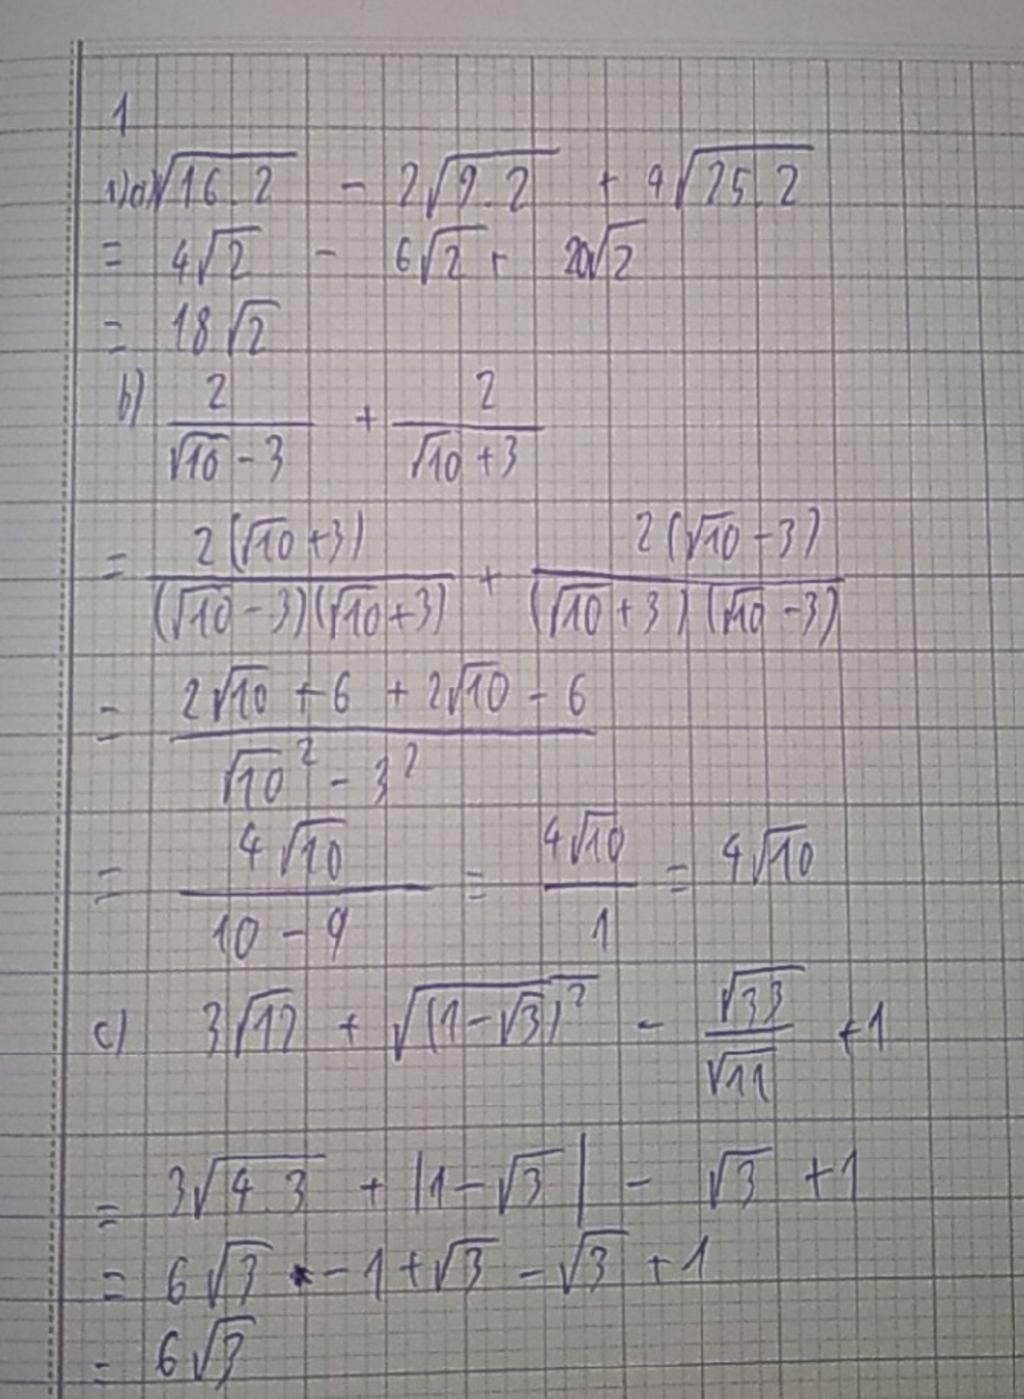 1
1) a) √16.2 - 2√9.2 + 4√25.2
= 4√2 - 6√2 + 20√2
= 18√2
b) 2/(√10 - 3) + 2/(√10 + 3)
= 2(√10 + 3)/((√10 - 3)(√10 + 3)) + 2(√10 - 3)/((√10 + 3)(√10 - 3))
= (2√10 + 6 + 2√10 - 6)/(√10² - 3²)
= 4√10/(10 - 9) = 4√10/1 = 4√10
c) 3√12 + √(1 - √3)² - √33/√11 + 1
= 3√4 3 + |1 - √3| - √3 + 1
= 6√3 - 1 + √3 - √3 + 1
= 6√3